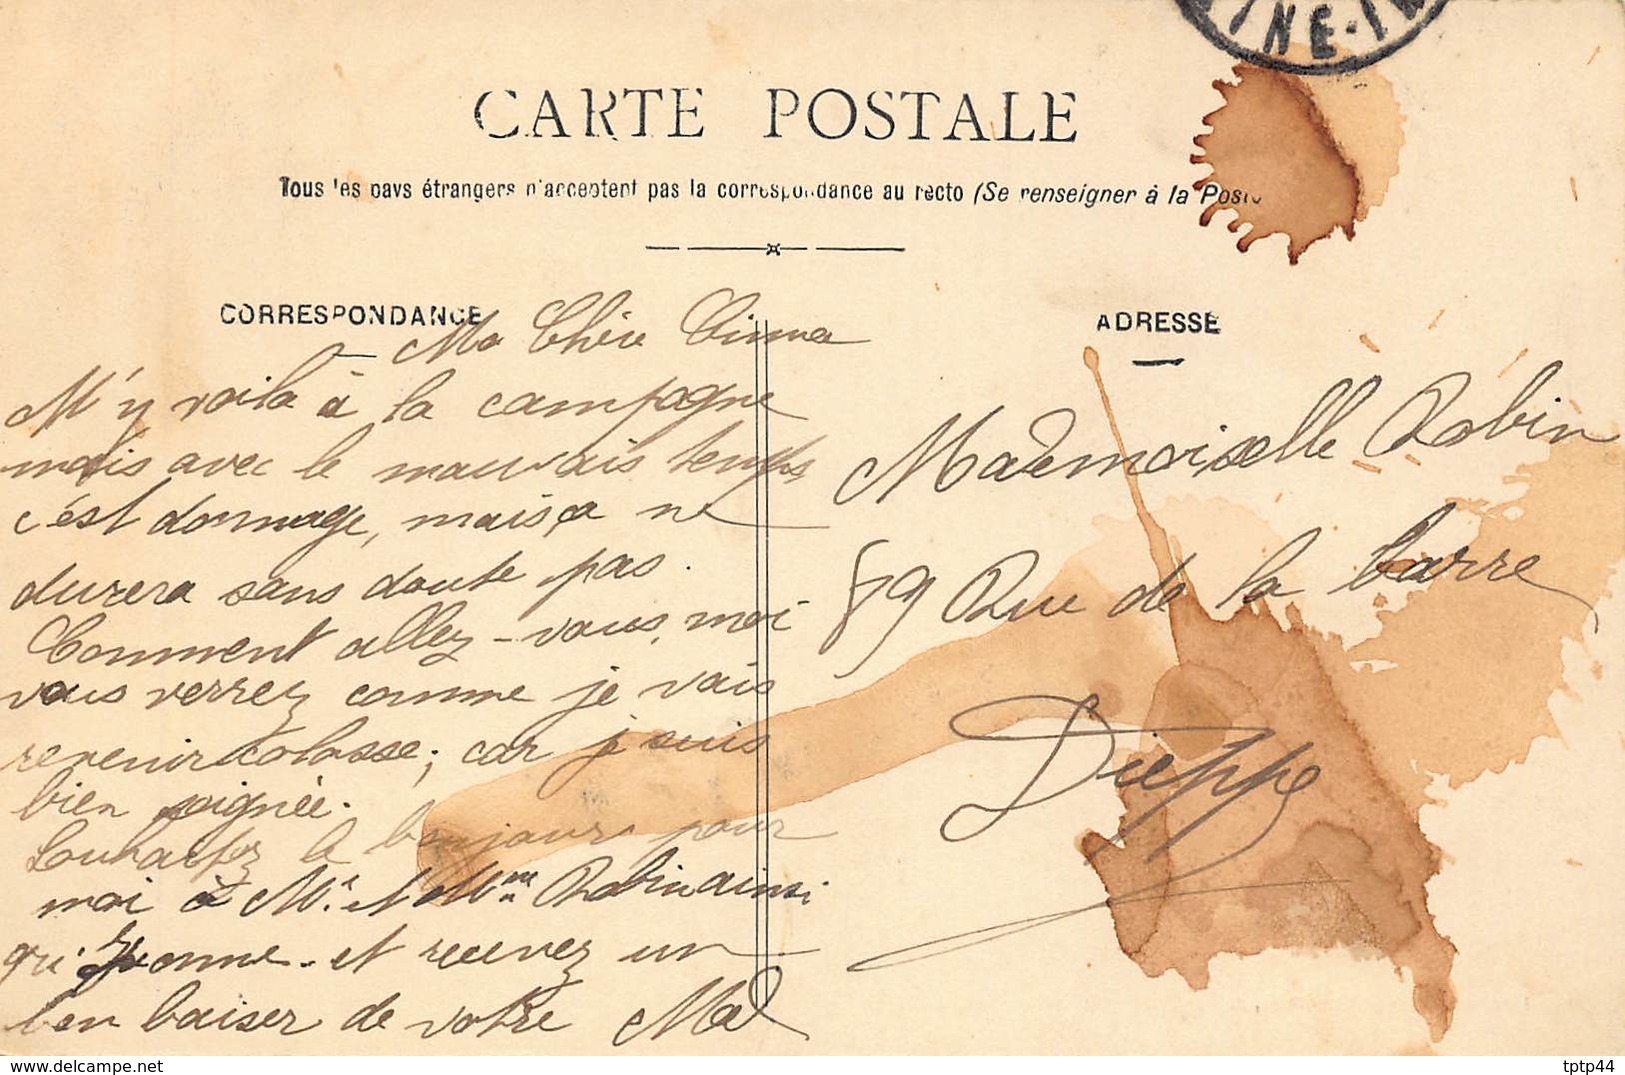 INE-IN
CARTE POSTALE
Tous les pays étrangers n'acceptent pas la correspondance au recto (Se renseigner à la Poste
CORRESPONDANCE
Ma Chère
M'y voila à la campagne
mais avec le mauvais temps,
c'est dommage, mais ça ne
durera sans doute pas.
Comment allez-vous, moi
vous verrez comme je vais
revenir colosse; car je suis
bien soignée.
Souhaitez le bonjour pour
moi à Mr. et Mme Robin ainsi
qu'Yvonne - et recevez un
bon baiser de votre Mad
ADRESSE
Mademoiselle Robin
89 Rue de la barre
Dieppe
www.delcampe.net
tptp44